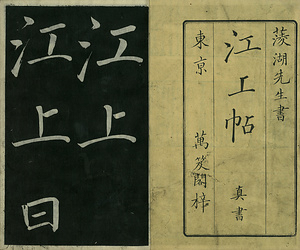 菱湖先生書
江上帖
真書
東京
萬笈閣梓
江上
江上曰